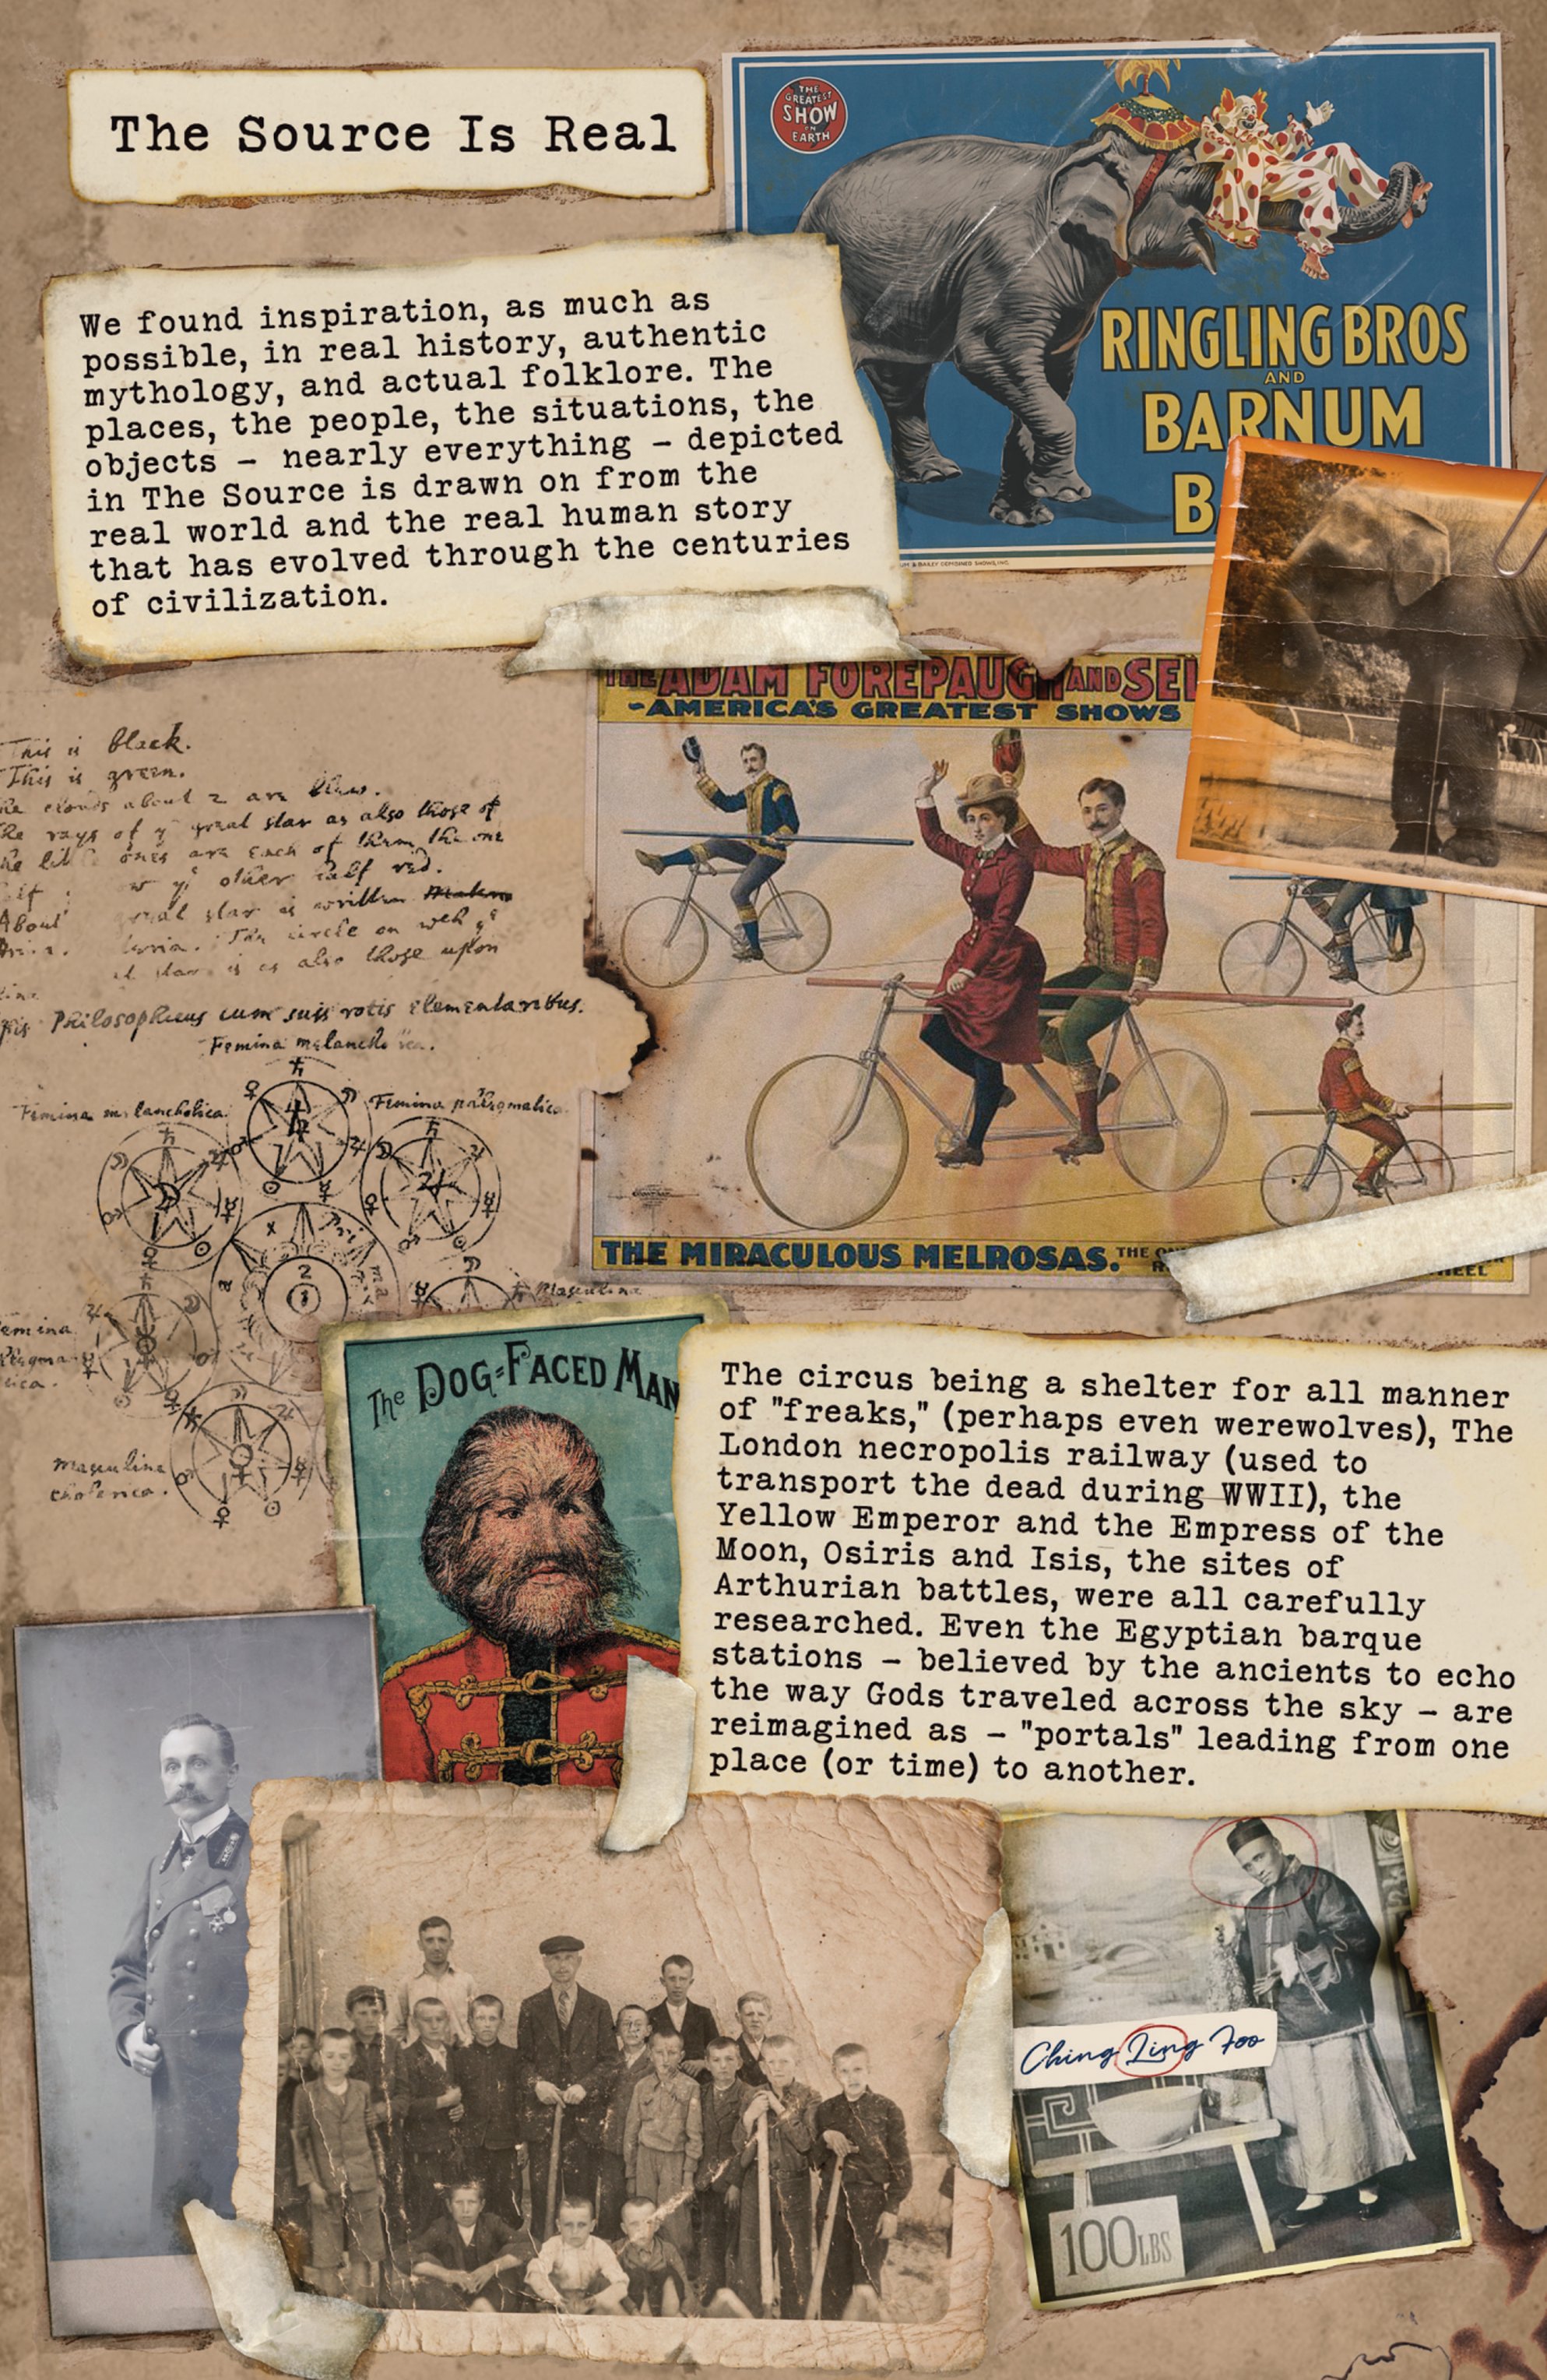 The Source Is Real
THE
GREATEST
SHOW
ON
EARTH
RINGLING BROS
AND
BARNUM
B
We found inspiration, as much as
possible, in real history, authentic
mythology, and actual folklore. The
places, the people, the situations, the
objects – nearly everything – depicted
in The Source is drawn on from the
real world and the real human story
that has evolved through the centuries
of civilization.
UM & BAILEY COMBINED SHOWS, INC.
THE ADAM FOREPAUGH AND SEL
-AMERICA'S GREATEST SHOWS
This is black.
This is green.
he clouds about 2 are blew.
he rays of yͤ great star as also those of
he little ones are each of them the one
yͤ other half red.
About great star is written
The circle on wch
star is as also those upon
Philosophicus cum suis rotis elementaribus.
Femina melancho
Femina melancholica
Femina phlegmatica
2
Masculina
emina
masculina
cholerica.
THE MIRACULOUS MELROSAS. THE
The DOG-FACED MAN
The circus being a shelter for all manner
of "freaks," (perhaps even werewolves), The
London necropolis railway (used to
transport the dead during WWII), the
Yellow Emperor and the Empress of the
Moon, Osiris and Isis, the sites of
Arthurian battles, were all carefully
researched. Even the Egyptian barque
stations – believed by the ancients to echo
the way Gods traveled across the sky – are
reimagined as – "portals" leading from one
place (or time) to another.
Ching Ling Foo
100 LBS